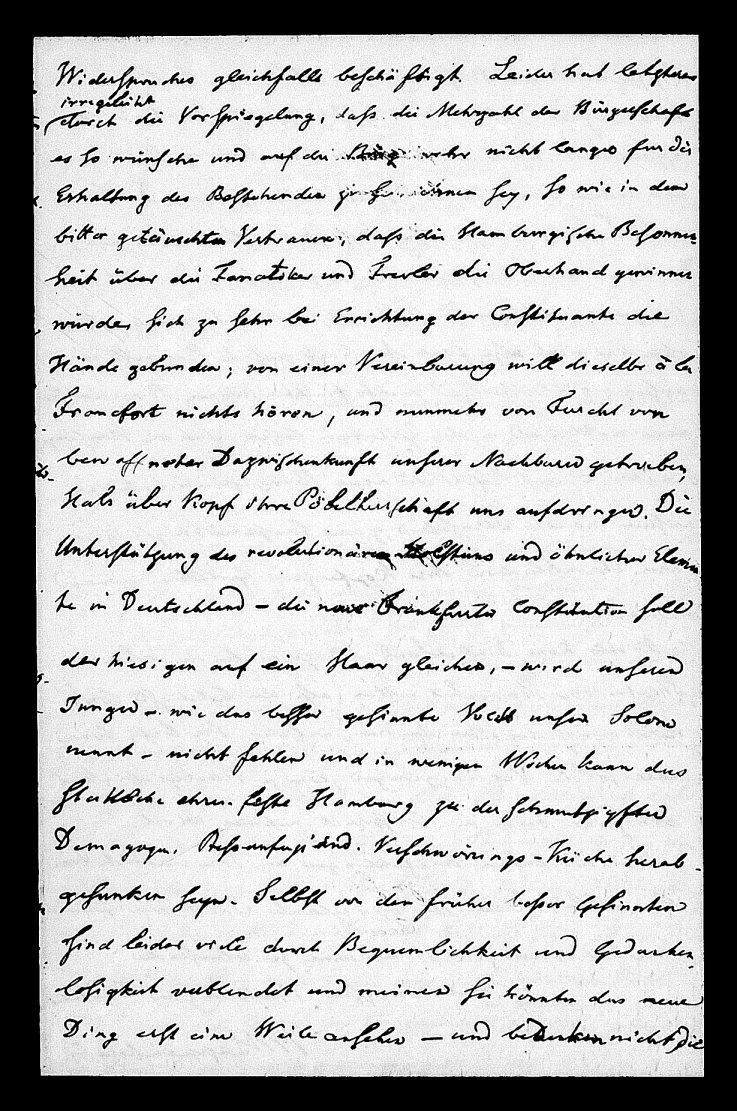 Widerspruches gleichfalls beschäftigt. Leider hat letzterer
irregeleitet
durch die Vorspiegelung, daß die Mehrzahl der Bürgerschaft
es so wünsche und auf die nicht langer fur die
Erhaltung des Bestehenden zu sey, so wie in dem
bitter getäuschten Vertrauen, daß die Hamburgische Besonnen-
heit über die Fanatiker und Frevler die Oberhand gewinnen
würde, sich zu sehr bei Errichtung der Constituante die
Hände gebunden; von einer Vereinbarung will dieselbe à la
Francfort nichts hören, und nunmehr von Furcht vor
bewaffneter Dazwischenkunft unserer Nachbaren getrieben,
Hals über Kopf ihre Pöbelherrschaft uns aufdringen. Die
Unterstützung des revolutionären Holsteins und ähnlicher Elemen-
te in Deutschland – die neue Frankfurter Constitution soll
der hiesigen auf ein Haar gleichen, – wird unseren
Jungen – wie das besser gesinnte Volk unsere Solone
nennt – nicht fehlen und in wenigen Wochen kann das
stattliche ehren-feste Hamburg zu der schmutzigsten
Demagogen, Verschwörungs-Küche herab-
gesunken seyn. Selbst von den früher besser Gesinnten
sind leider viele durch Bequemlichkeit und Gedanken-
losigkeit verblendet und meinen sie könnten das neue
Ding erst eine Weile ansehen – und bedenken nicht, die